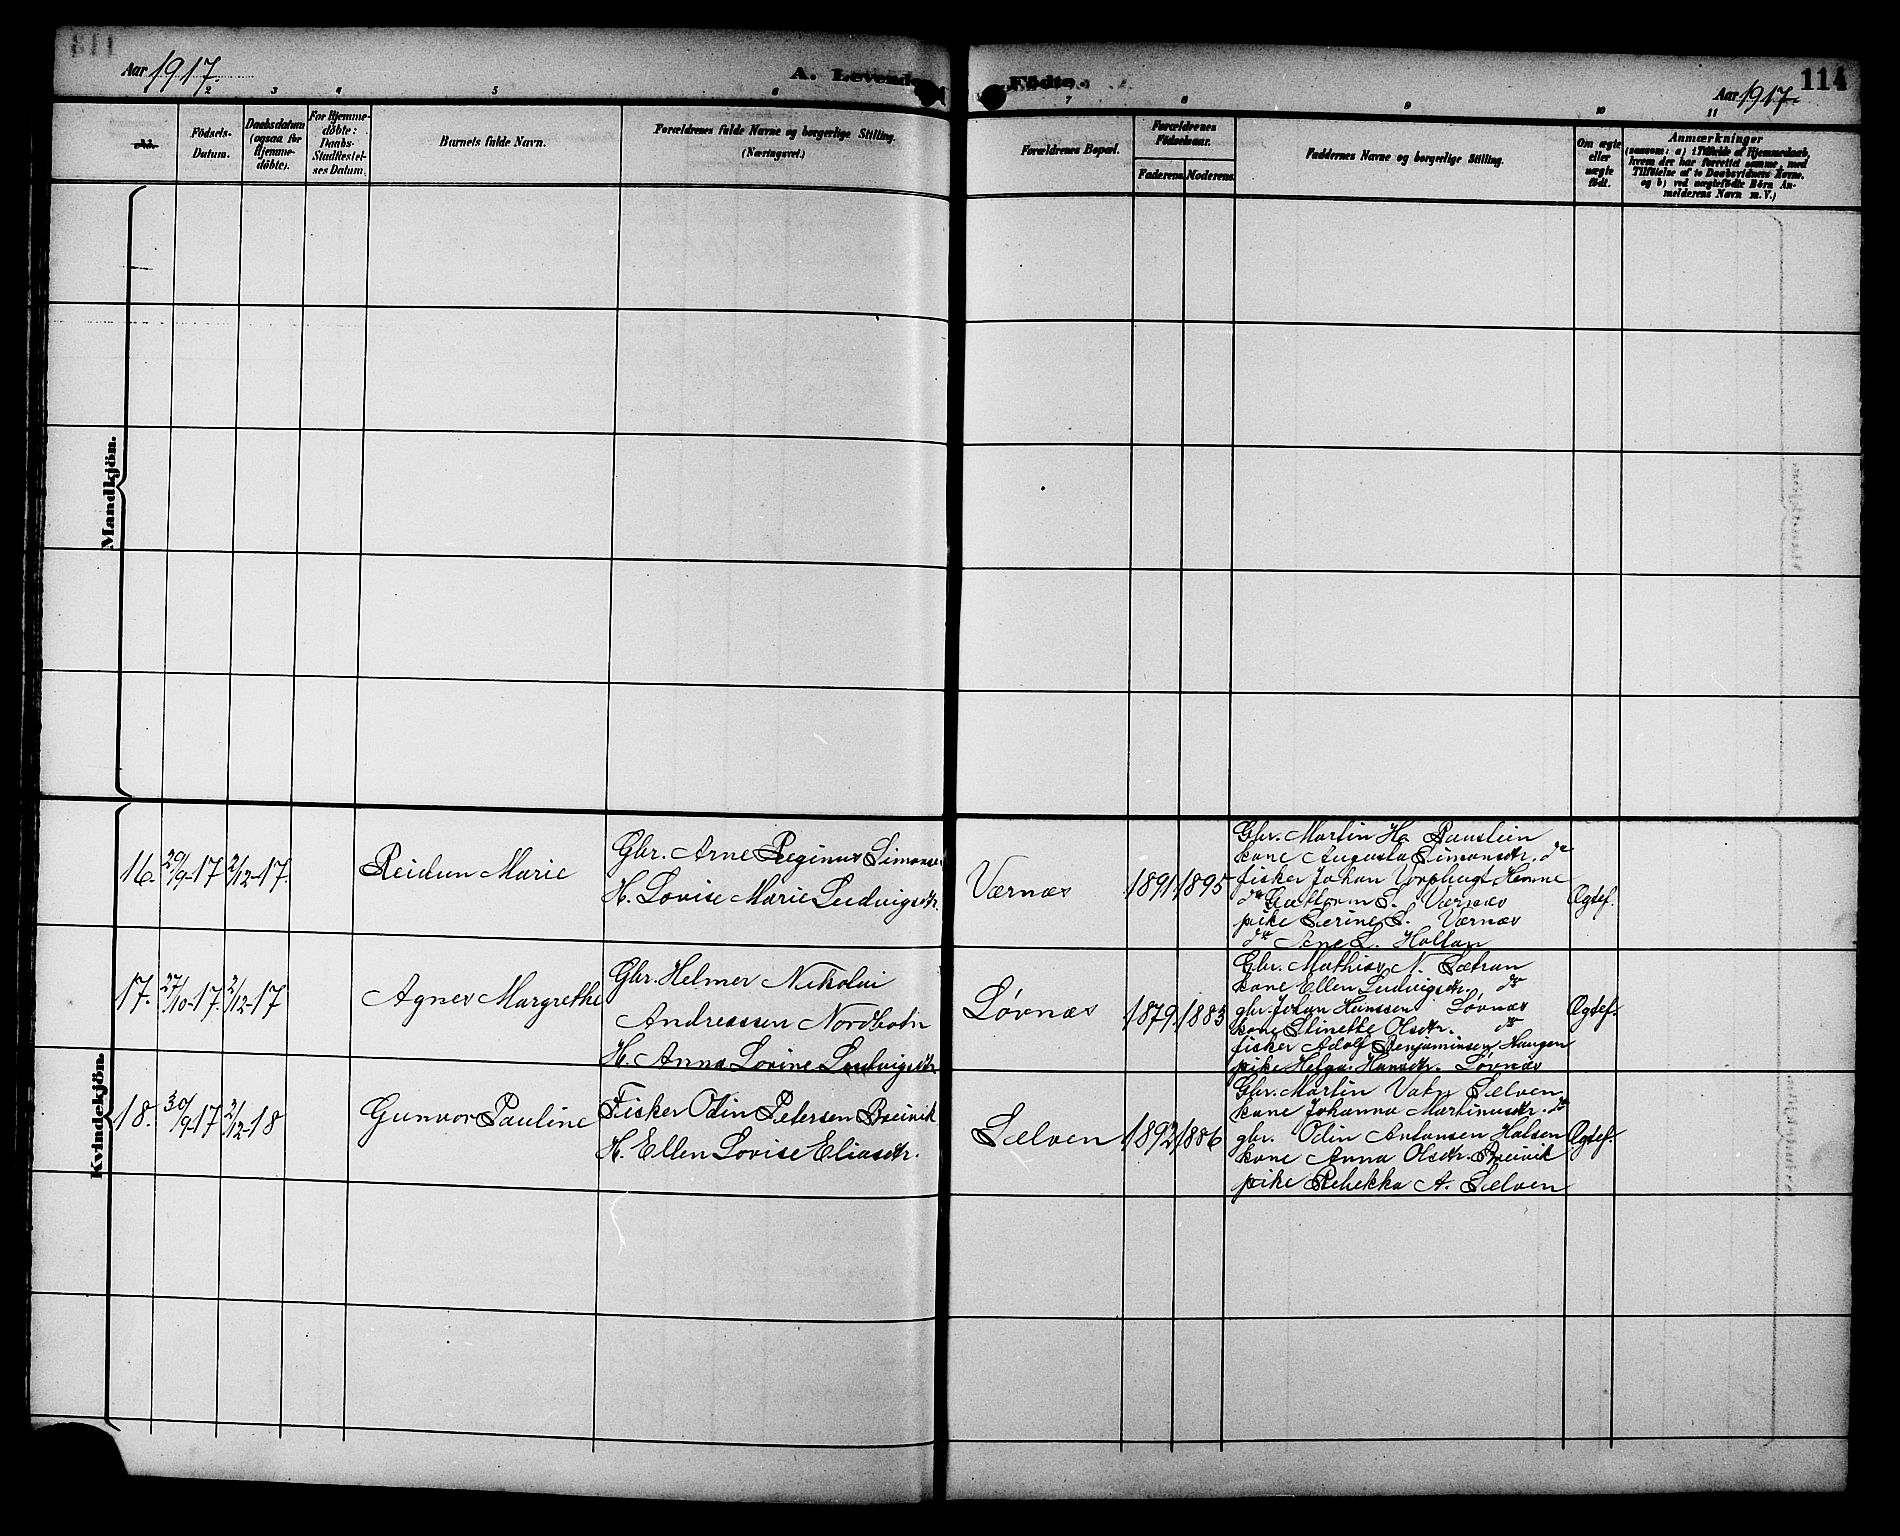 Aar 1917.
A. Levende
Födte.
Aar 1917.
114
1 2 3 4 5 6 7 8 9 10 11
No.
Födsels-
Datum.
Daabsdatum
(ogsaa for
Hjemme-
döbte).
For Hjemme-
döbte:
Daabs-
Stadfæstel-
ses Datum.
Barnets fulde Navn.
Forældrenes fulde Navne og borgerlige Stilling.
(Næringsvei.)
Forældrenes Bopæl.
Forældrenes
Födselsaar.
Faderens. Moderens.
Faddernes Navne og borgerlige Stilling.
Om ægte
eller
uægte
födt.
Anmærkninger
(saasom: a) i Tilfælde af Hjemmedaab,
hvem der har forrettet samme, med
Tilföielse af to Daabsvidners Navne.
og b) ved uægtefödte Börn An-
melderens Navn m. V.)
Mandkjön.
Kvindekjön.
16. 29/9-17 2/12-17. Reidun Marie
Gbr. Arne Reginus Simonse
H. Lovise Marie Ludvigsdtr.
Værnæs 1891. 1895
Gbr. Martin H.
kone Augusta Simonsdtr. do
fisker Johan Hemne
do Guttorm S. Værnæs
pike Serine S. Værnæs
do L. Hollan
Ægtef.
17. 27/10-17. 2/12-17 Agnes Margrethe
Gbr. Helmer Nikolai
Andreassen Nordbotn
H. Anna Lovine Ludvigsdtr
Lövnæs 1879. 1883
Gbr. Mathias N. Sætran
kone Ellen Ludvigsdtr. do
gbr. Johan Hanssen Lövnæs
kone Stinette Olsdtr. do
fisker Adolf Benjaminsen Haugen
pike Helga Hansdtr. Lövnæs
Ægtef.
18. 30/9-17 2/12-18 Gunvor Pauline
Fisker Odin Petersen Breivik
H. Ellen Lovise Eliasdtr.
Selven 1892. 1886
Gbr. Martin Vatn Selven
kone Johanna Martinusdtr. do
gbr. Odin Antonsen Halsen
kone Anna Olsdtr. Breivik
pike Rebekka A. Selven
Ægtef.